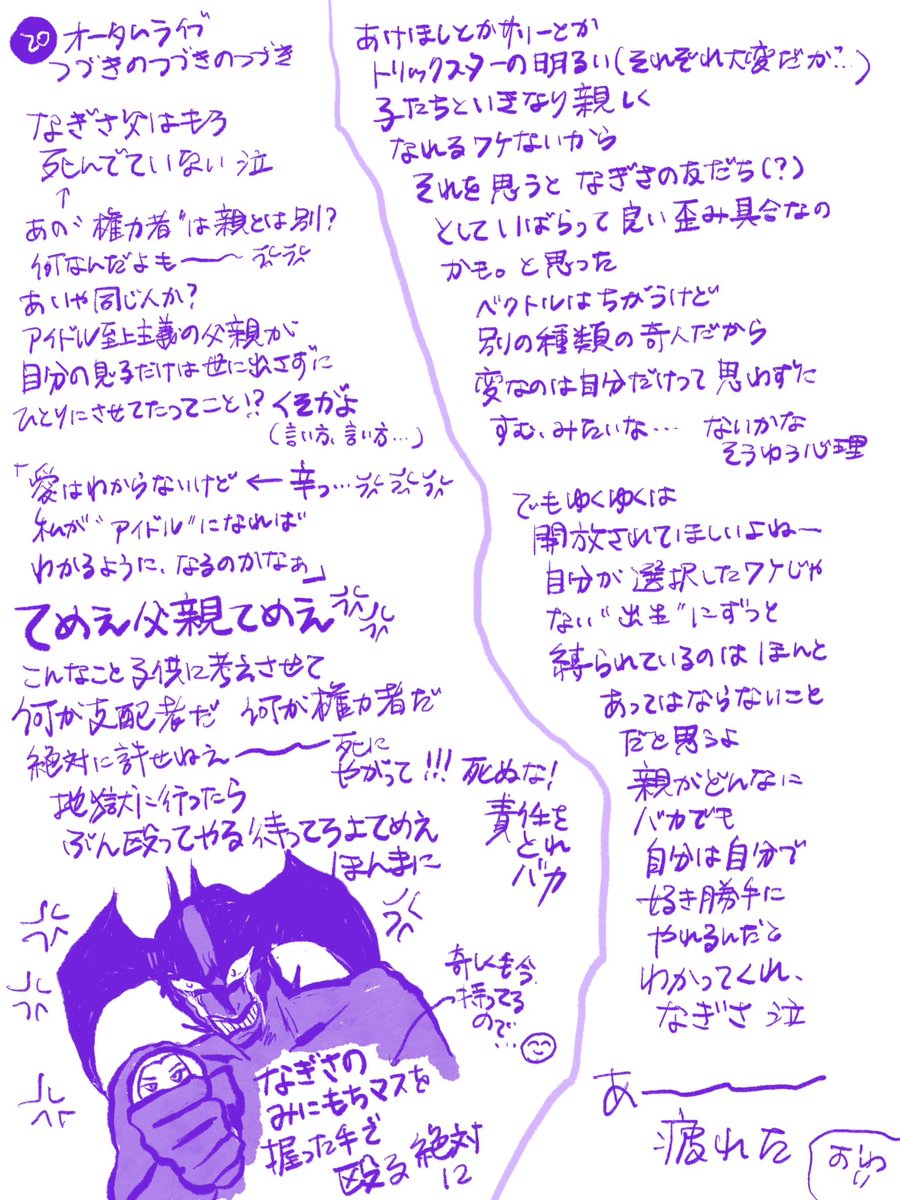 20 オータムライブ
つづきのつづきのつづき
なぎさ父はもう
死んでていない 泣
↑
あの"権力者"は親とは別?
何なんだよも〜〜
あいや同じ人か?
アイドル至上主義の父親が
自分の息子だけは世に出さずに
ひとりにさせてたってこと!? くそがよ
(言い方、言い方…)
「愛はわからないけど ← 辛っ…
私が"アイドル"になれば
わかるように、なるのかなぁ」
てめえ父親てめえ
こんなこと子供に考えさせて
何が支配者だ 何が権力者だ
絶対に許せねえ〜〜 死に
やがって!!! 死ぬな!
責任を
とれ
バカ
地獄に行ったら
ぶん殴ってやる待ってろよてめえ
ほんまに
奇しくも今
持ってる
ので…
なぎさの
みにもちマスを
握った手で
殴る 絶対
に
あけほしとかサリーとか
トリックスターの明るい(それぞれ大変だが…)
子たちといきなり親しく
なれるワケないから
それを思うと なぎさの友だち(?)
としていばらって良い歪み具合なの
かも。と思った
ベクトルはちがうけど
別の種類の奇人だから
変なのは自分だけって思わずに
すむ、みたいな… ないかな
そうゆう心理
でもゆくゆくは
開放されてほしいよねー
自分が選択したワケじゃ
ない"出生"にずっと
縛られているのはほんと
あってはならないこと
だと思うよ
親がどんなに
バカでも
自分は自分で
好き勝手に
やれるんだと
わかってくれ、
なぎさ 泣
あ〜〜
疲れた
おわり